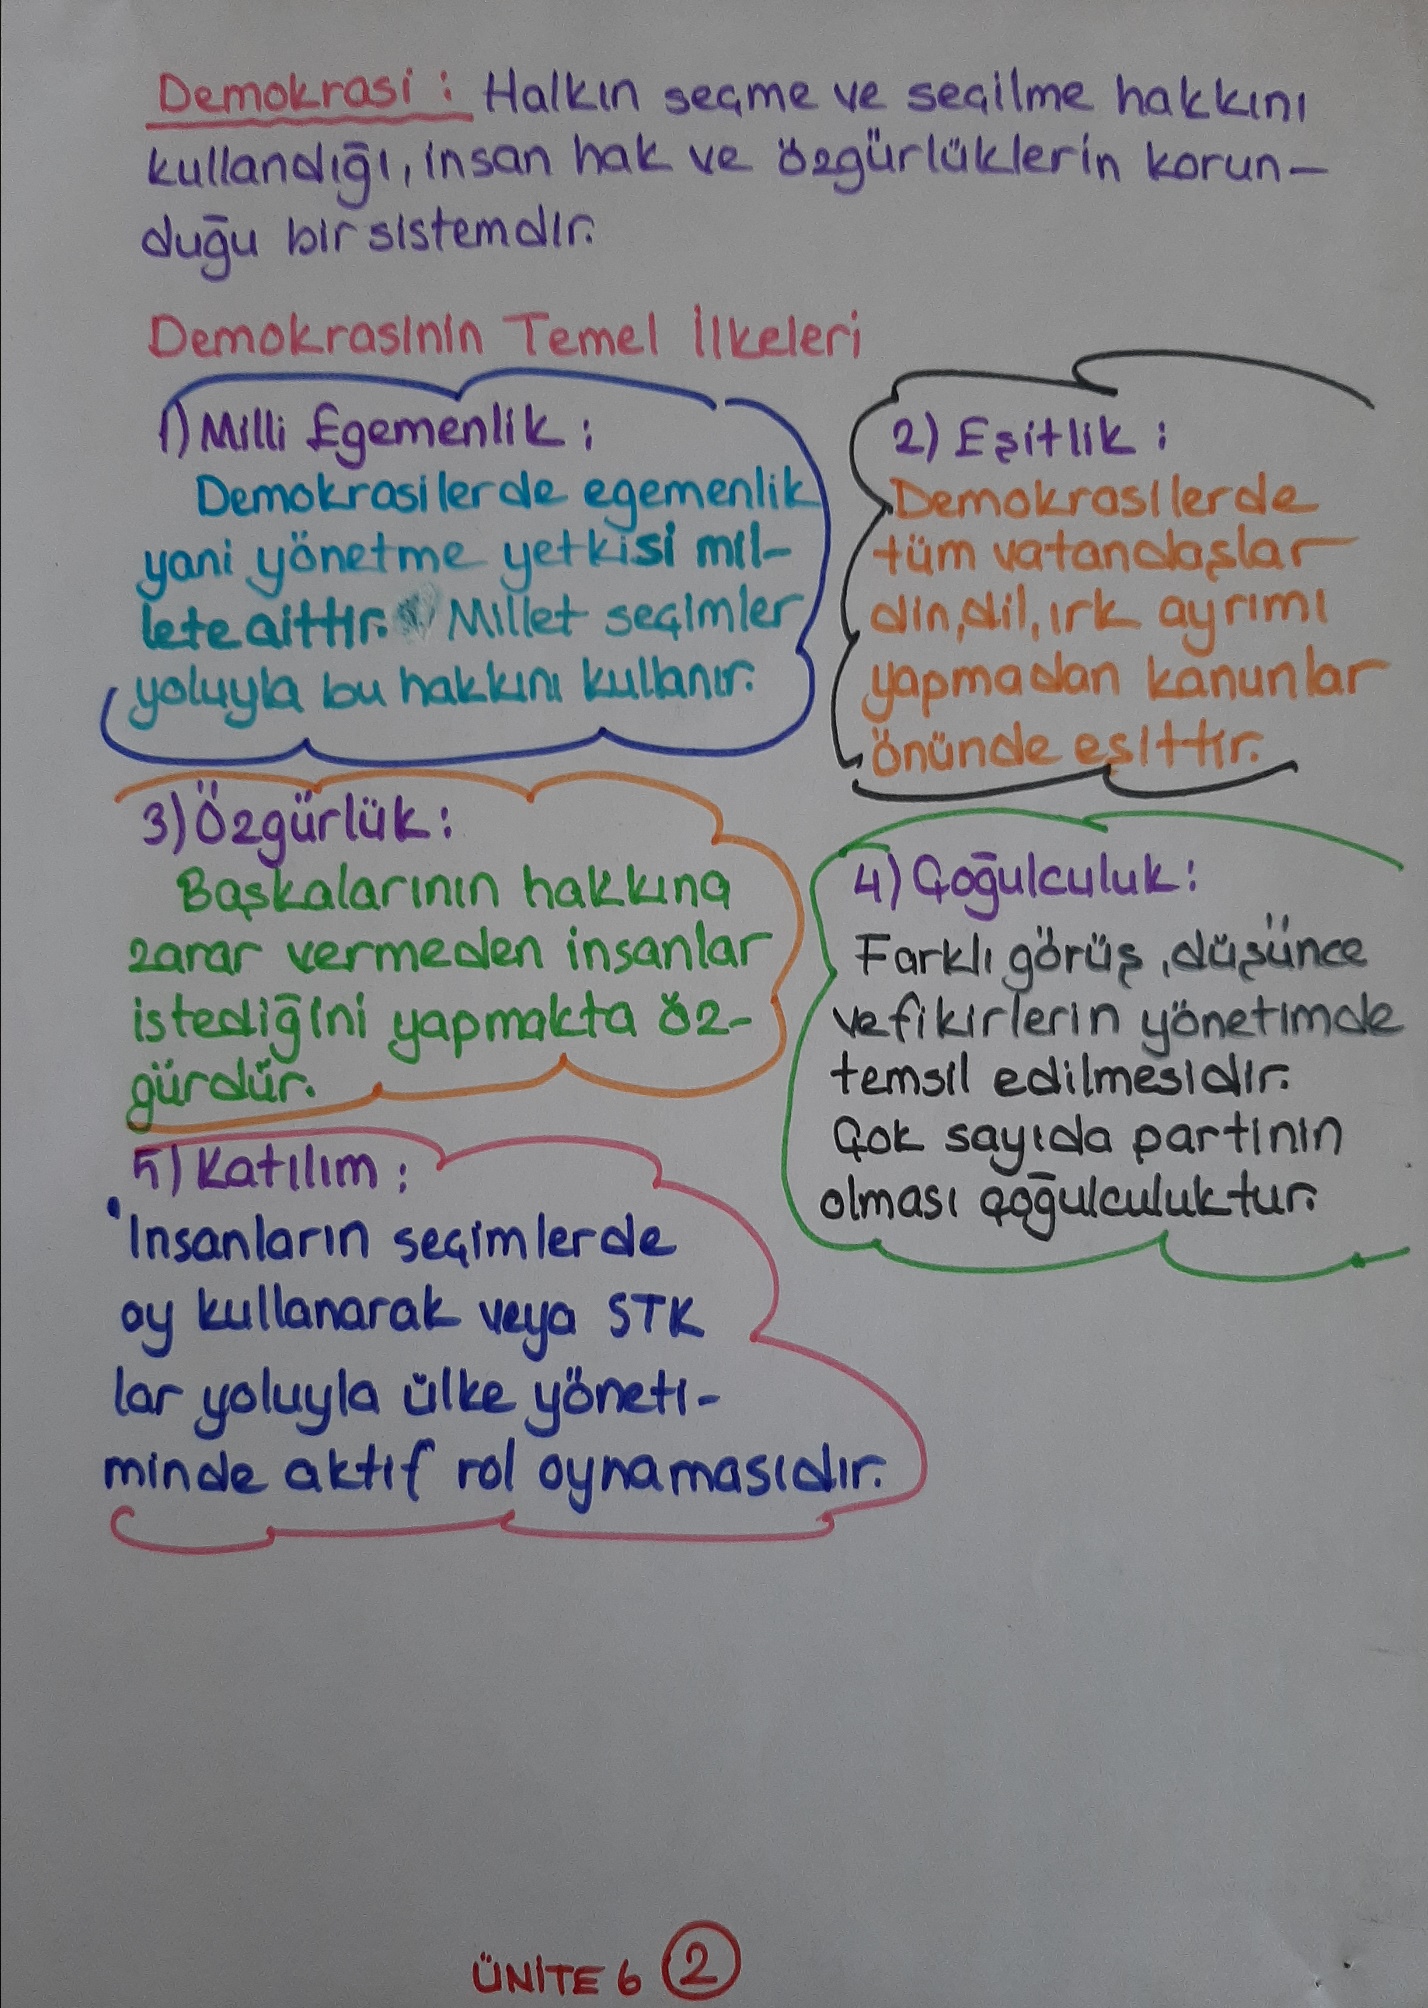 Demokrasi : Halkın seçme ve seçilme hakkını
kullandığı, insan hak ve özgürlüklerin korun-
duğu bir sistemdir.
Demokrasinin Temel İlkeleri
1) Milli Egemenlik :
Demokrasilerde egemenlik
yani yönetme yetkisi mil-
lete aittir. Millet seçimler
yoluyla bu hakkını kullanır.
2) Eşitlik :
Demokrasilerde
tüm vatandaşlar
din, dil, ırk ayrımı
yapmadan kanunlar
önünde eşittir.
3) Özgürlük :
Başkalarının hakkına
zarar vermeden insanlar
istediğini yapmakta öz-
gürdür.
4) Çoğulculuk :
Farklı görüş, düşünce
ve fikirlerin yönetimde
temsil edilmesidir.
Çok sayıda partinin
olması çoğulculuktur.
5) Katılım :
İnsanların seçimlerde
oy kullanarak veya STK
lar yoluyla ülke yöneti-
minde aktif rol oynamasıdır.
ÜNİTE 6 2